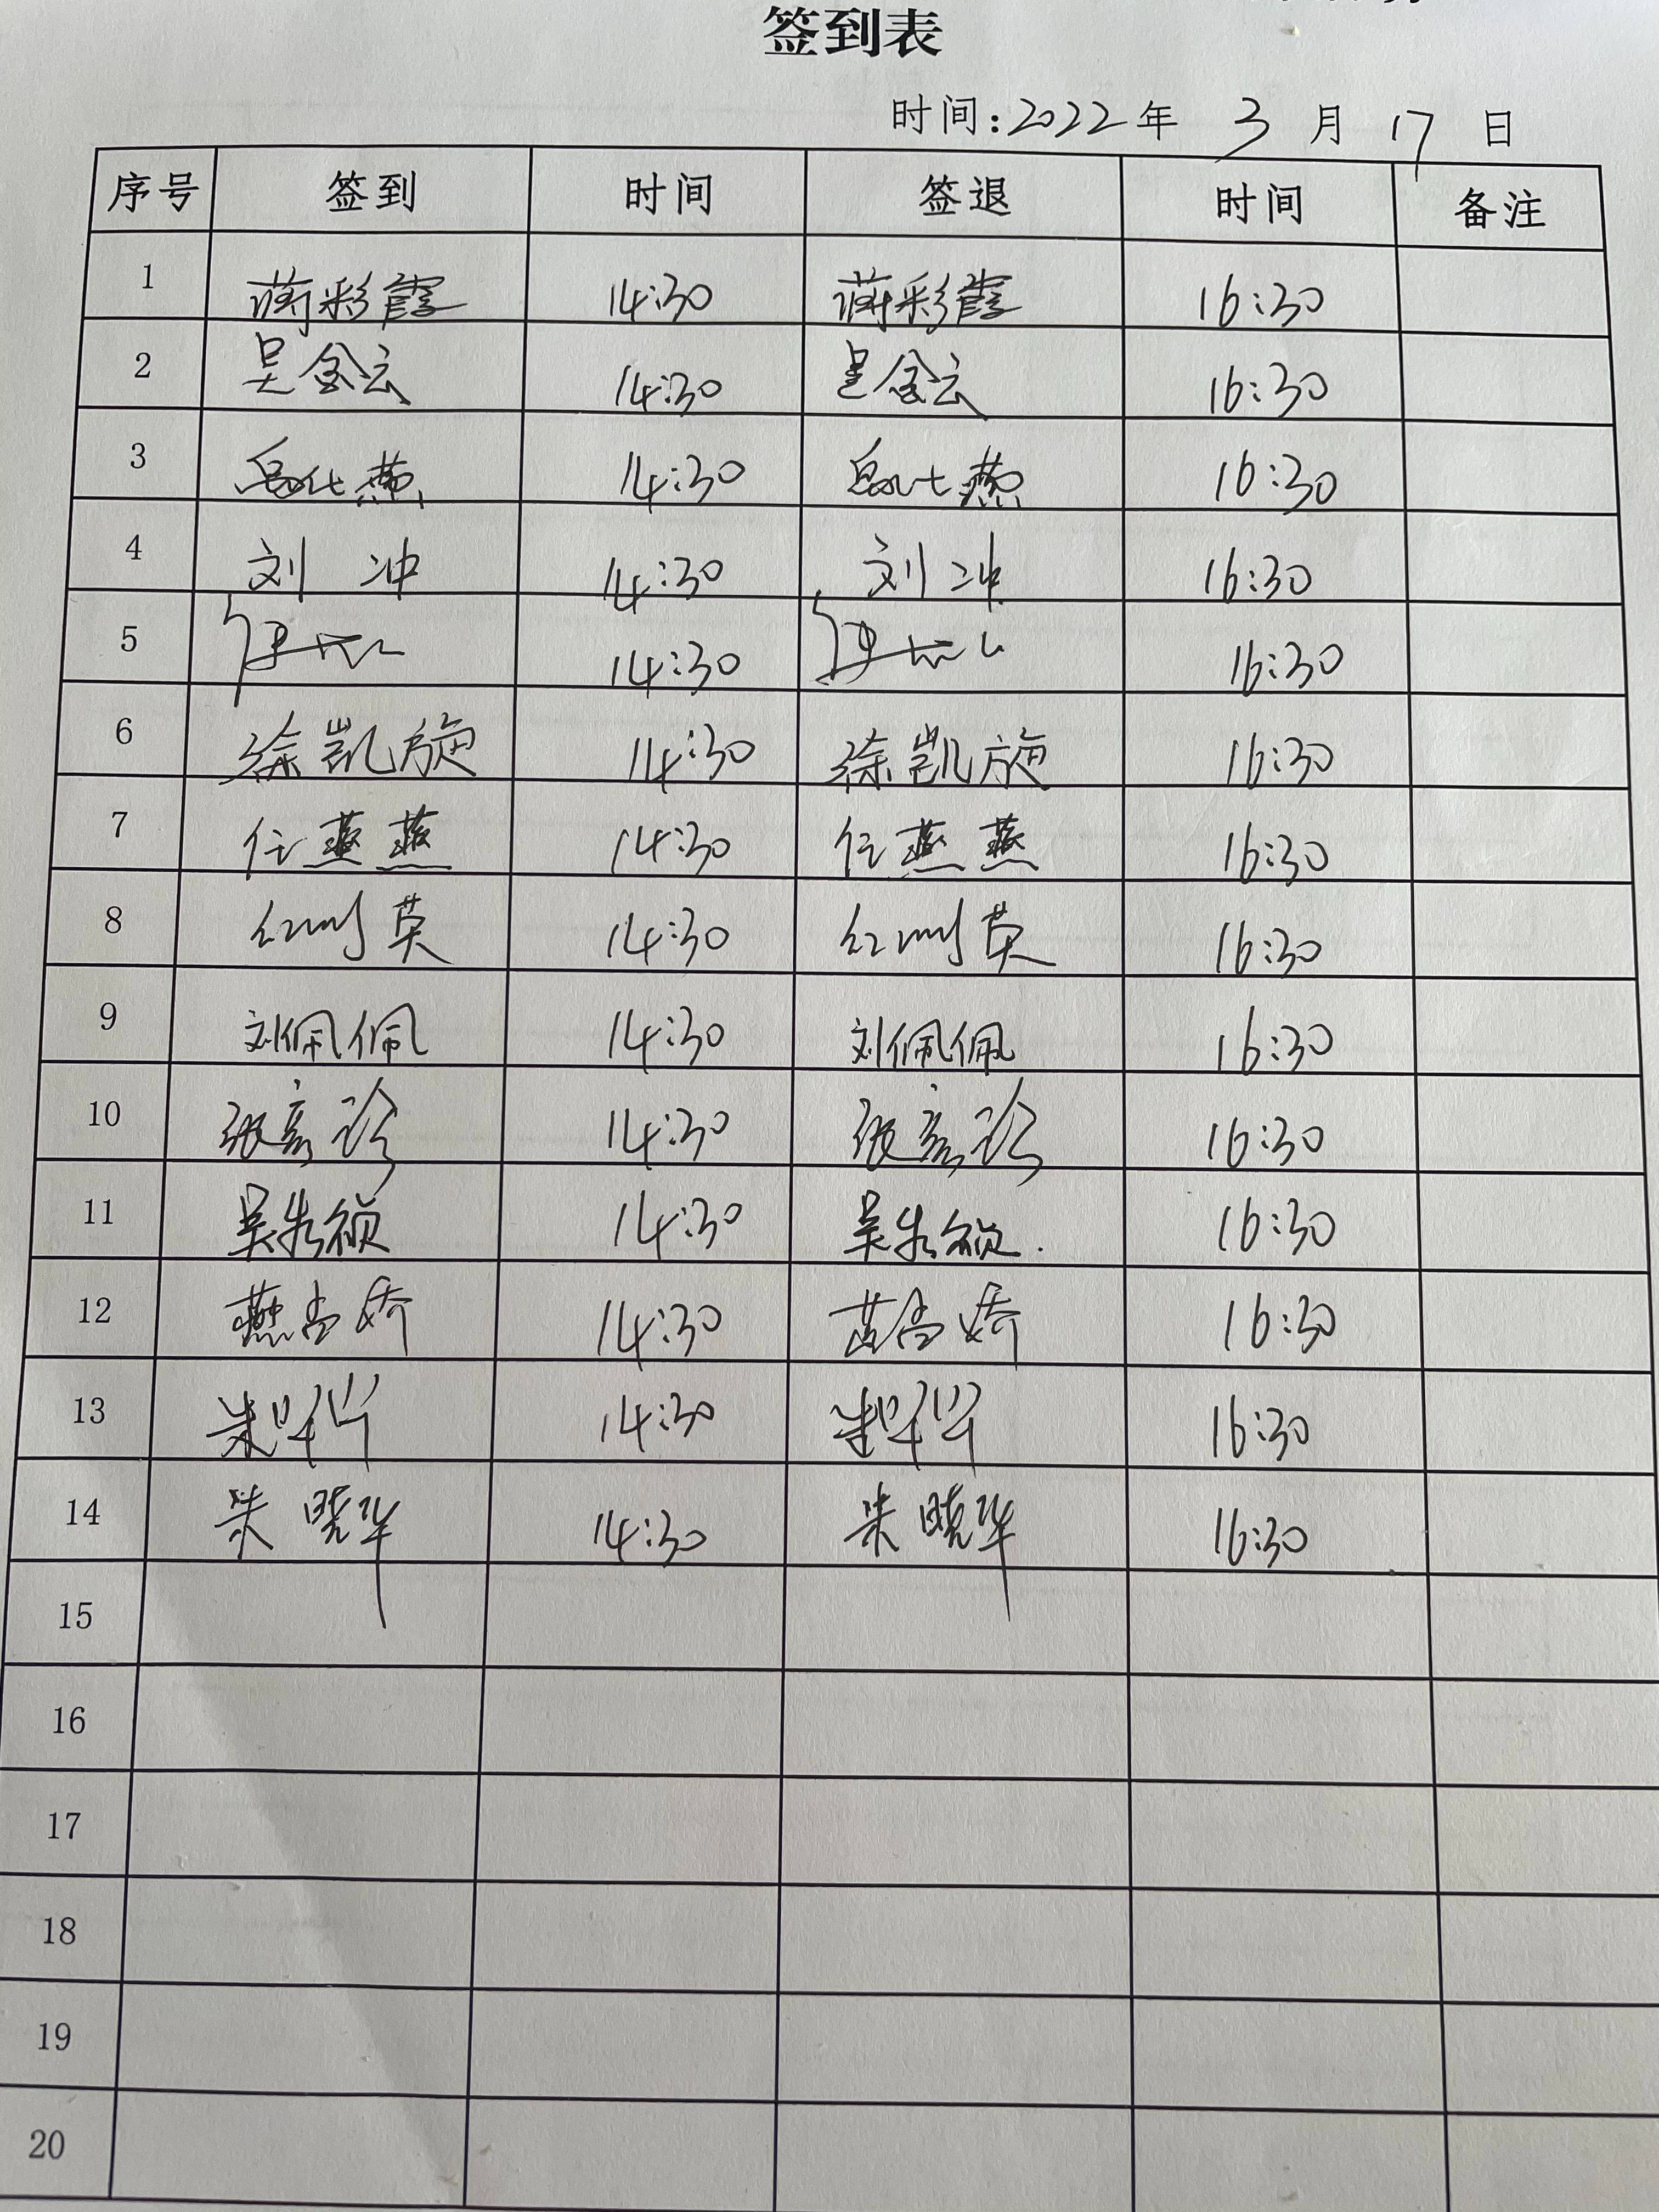 签到表
时间:2022年 3 月 17 日
序号 签到 时间 签退 时间 备注
1 蒋彩霞 14:30 蒋彩霞 16:30
2 吴金云 14:30 吴金云 16:30
3 14:30 16:30
4 刘冲 14:30 刘冲 16:30
5 14:30 16:30
6 徐凯旋 14:30 徐凯旋 16:30
7 任燕燕 14:30 任燕燕 16:30
8 14:30 16:30
9 刘佩佩 14:30 刘佩佩 16:30
10 14:30 16:30
11 14:30 16:30
12 14:30 16:30
13 14:30 16:30
14 朱晓华 14:30 朱晓华 16:30
15
16
17
18
19
20